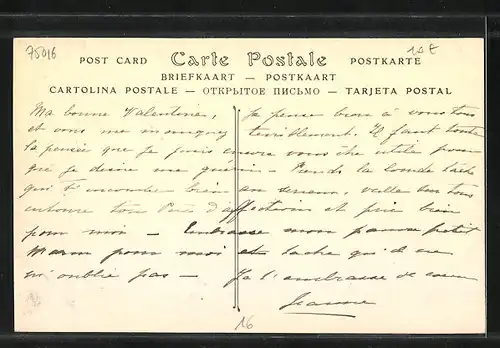 75016
15 E
POST CARD Carte Postale POSTKARTE
BRIEFKAART — POSTKAART
CARTOLINA POSTALE — ОТКРЫТОЕ ПИСЬМО — TARJETA POSTAL
Ma bonne Valentine, je pense bien à vous tous
et vous me manquez terriblement. Il faut toute
la pensée que je puis encore vous être utile pour
que je désire me guérir — Prends la lourde tâche
qui t'incombe bien au sérieux, veille sur tous
entoure ton Père d'affection et prie bien
pour moi — Embrasse mon pauvre petit
pour moi et tâche qu'il ne
m'oublie pas — Je t'embrasse de coeur
Jeanne
16